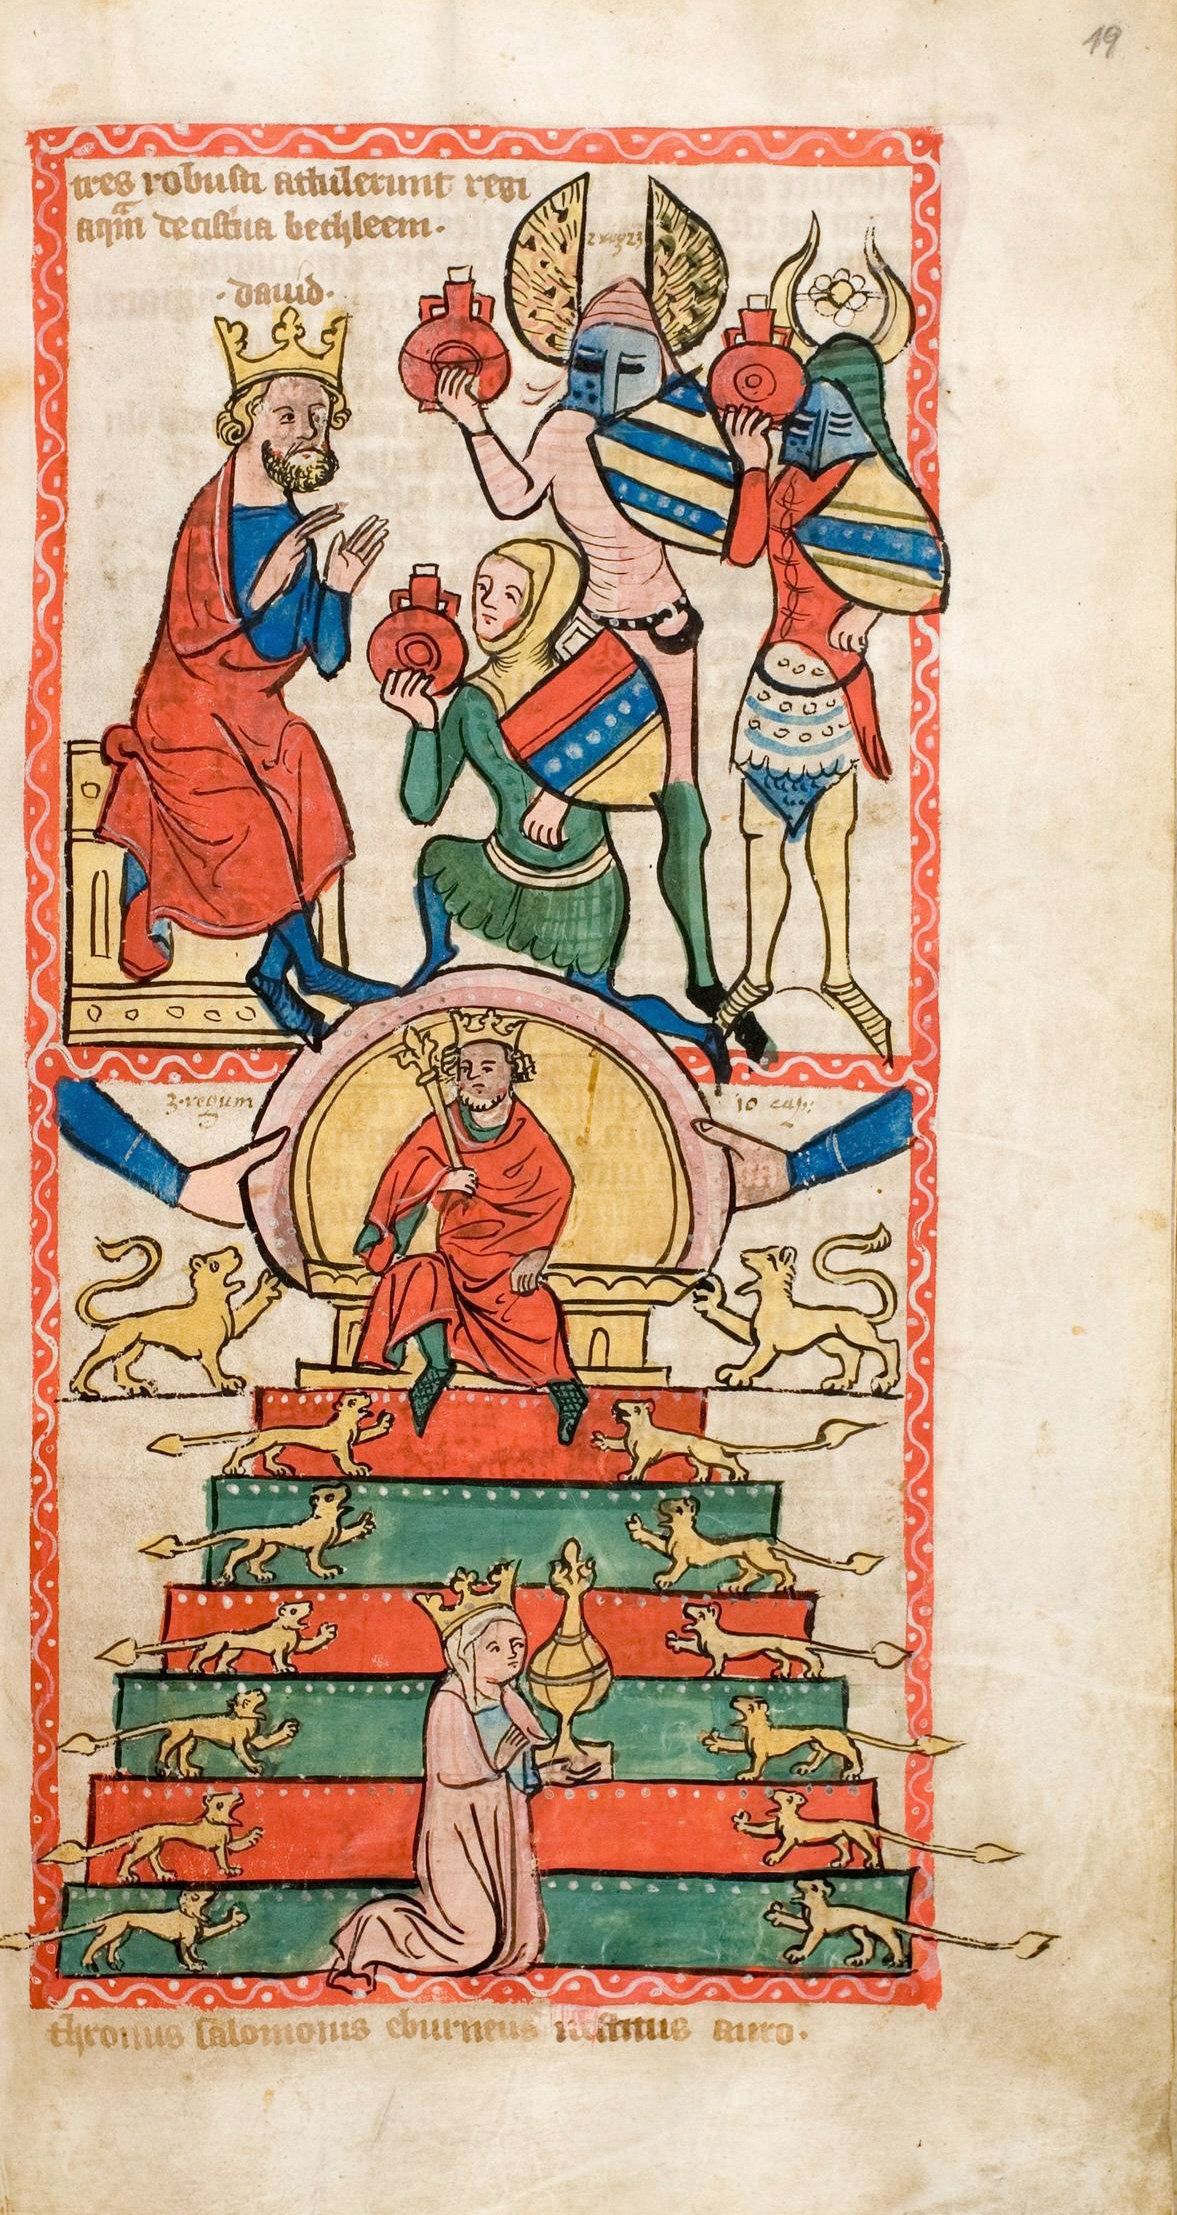 19
tres robusti attulerunt regi
aqᵃm de cisterna bethleem.
·dauid·
2 reg 23
3. regum
10 cap:
thronus salomonis eburneus uestitus auro.